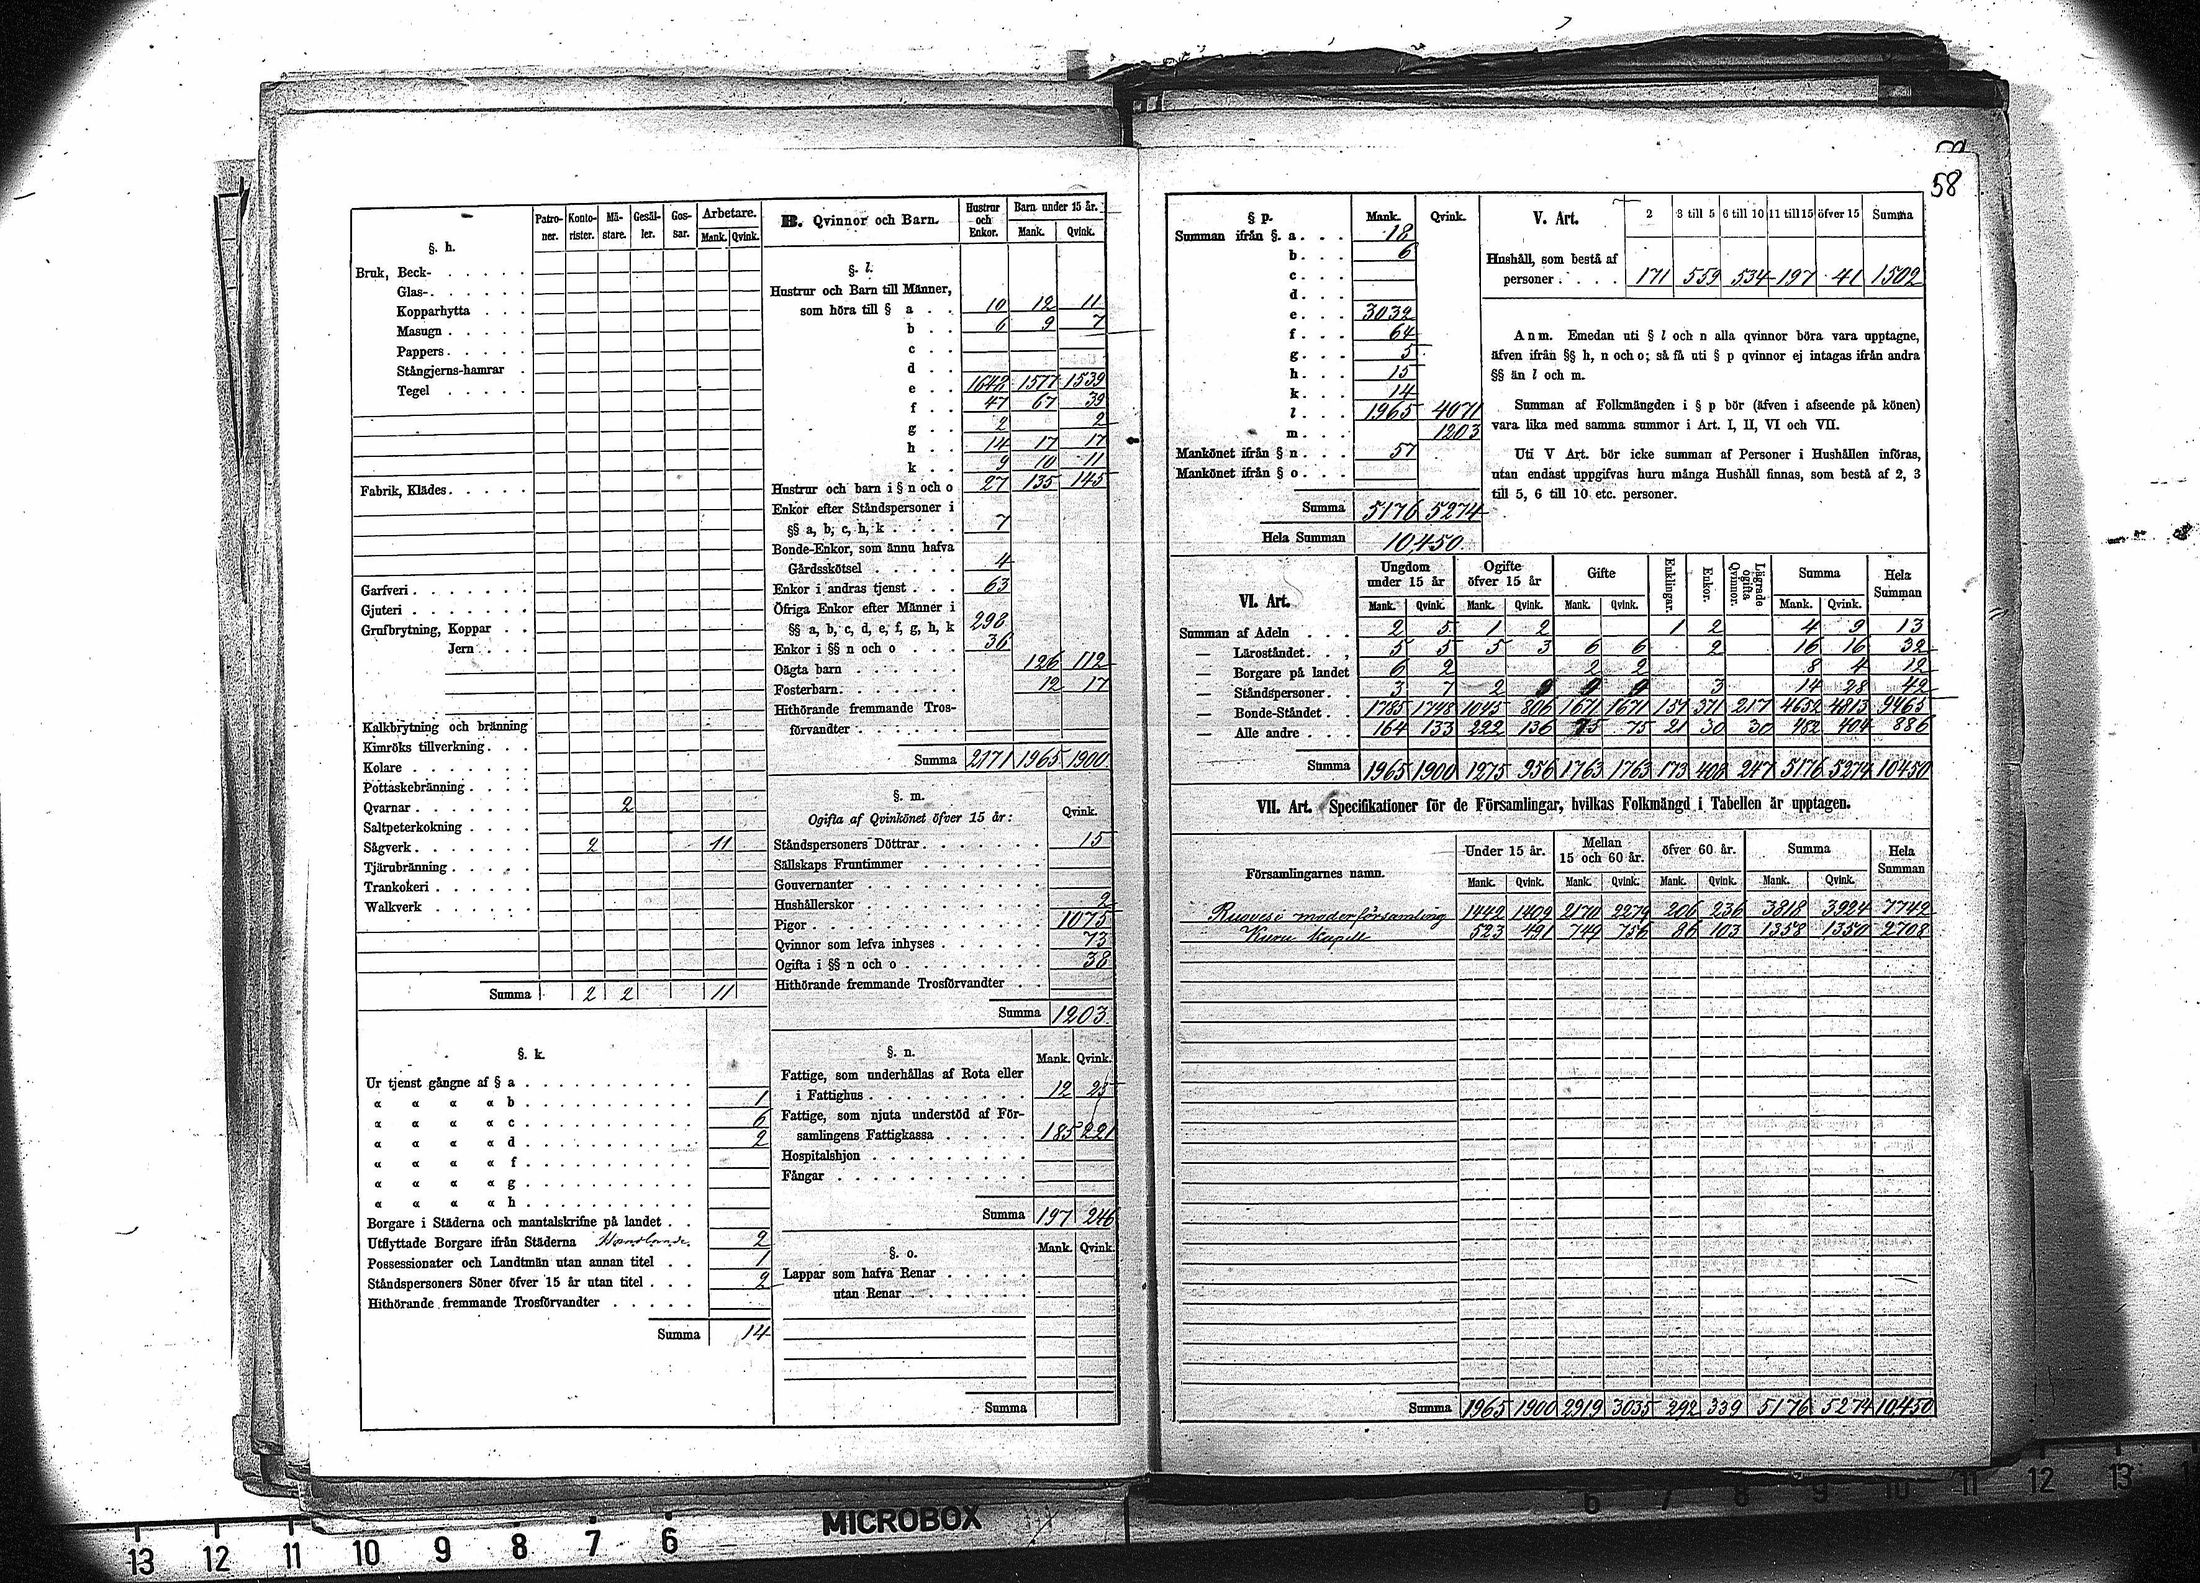 58
§. h.
Patro-ner. Konto-rister. Mä-stare. Gesäl-ler. Gos-sar. Arbetare.
Mank. Qvink.
Bruk, Beck- . . . . .
Glas- . . . . . .
Kopparhytta . . .
Masugn . . . . .
Pappers . . . . .
Stångjerns-hamrar .
Tegel . . . . .
Fabrik, Klädes . . . . .
Garfveri . . . . . . .
Gjuteri . . . . . . .
Grufbrytning, Koppar . .
Jern . . . .
Kalkbrytning och bränning
Kimröks tillverkning . . .
Kolare . . . . . . .
Pottaskebränning . . . .
Qvarnar . . . . . . . 2
Saltpeterkokning . . . .
Sågverk . . . . . . . 2 11
Tjärubränning . . . . .
Trankokeri . . . . . .
Walkverk . . . . . .
Summa 2 2 11
§. k.
Ur tjenst gångne af § a . . . . . . . . . . .
« « « « b . . . . . . . . . . . 1
« « « « c . . . . . . . . . . . 6
« « « « d . . . . . . . . . . . 2
« « « « f . . . . . . . . . . .
« « « « g . . . . . . . . . . .
« « « « h . . . . . . . . . . .
Borgare i Städerna och mantalskrifne på landet . .
Utflyttade Borgare ifrån Städerna Handlande. 2
Possessionater och Landtmän utan annan titel . . 1
Ståndspersoners Söner öfver 15 år utan titel . . . 2
Hithörande fremmande Trosförvandter . . . . .
Summa 14
B. Qvinnor och Barn.
Hustrur och Enkor. Barn under 15 år.
Mank. Qvink.
§. l.
Hustrur och Barn till Männer,
som höra till § a . . 10 12 11
b . . 6 9 7
c . .
d . .
e . . 1642 1577 1539
f . . 47 67 39
g . . 2 2
h . . 14 17 17
k . . 9 10 11
Hustrur och barn i § n och o 27 135 145
Enkor efter Ståndspersoner i
§§ a, b, c, h, k . . . . 7
Bonde-Enkor, som ännu hafva
Gårdsskötsel . . . . . 4
Enkor i andras tjenst . . . 63
Öfriga Enkor efter Männer i
§§ a, b, c, d, e, f, g, h, k 298
Enkor i §§ n och o . . . 36
Oägta barn . . . . . . 126 112
Fosterbarn . . . . . . 12 17
Hithörande fremmande Tros-
förvandter . . . . . .
Summa 2171 1965 1900
§. m.
Ogifta af Qvinkönet öfver 15 år: Qvink.
Ståndspersoners Döttrar . . . . . . . 15
Sällskaps Fruntimmer . . . . . . .
Gouvernanter . . . . . . . . . .
Hushållerskor . . . . . . . . . . 2
Pigor . . . . . . . . . . . . 1075
Qvinnor som lefva inhyses . . . . . . 73
Ogifta i §§ n och o . . . . . . . . 38
Hithörande fremmande Trosförvandter . .
Summa 1203
§. n.
Mank. Qvink.
Fattige, som underhållas af Rota eller
i Fattighus . . . . . . . . . 12 25
Fattige, som njuta understöd af För-
samlingens Fattigkassa . . . . . 185 221
Hospitalshjon . . . . . . . . .
Fångar . . . . . . . . . . .
Summa 197 246
§. o.
Mank. Qvink.
Lappar som hafva Renar . . . . .
utan Renar . . . . . . .
Summa
§ p. Mank. Qvink.
Summan ifrån §. a . . . 18
b . . . 6
c . . .
d . . .
e . . . 3032
f . . . 64
g . . . 5
h . . . 15
k . . . 14
l . . . 1965 4071
m . . . 1203
Mankönet ifrån § n . . . 57
Mankönet ifrån § o . . .
Summa 5176 5274
Hela Summan 10450
V. Art. 2 3 till 5 6 till 10 11 till 15 öfver 15 Summa
Hushåll, som bestå af
personer . . . . 171 559 534 197 41 1502
Anm. Emedan uti § l och n alla qvinnor böra vara upptagne,
äfven ifrån §§ h, n och o; så få uti § p qvinnor ej intagas ifrån andra
§§ än l och m.
Summan af Folkmängden i § p bör (äfven i afseende på könen)
vara lika med samma summor i Art. I, II, VI och VII.
Uti V Art. bör icke summan af Personer i Hushållen införas,
utan endast uppgifvas huru många Hushåll finnas, som bestå af 2, 3
till 5, 6 till 10 etc. personer.
VI. Art.
Ungdom under 15 år Ogifte öfver 15 år Gifte Enklingar. Enkor. Lägrade ogifta Qvinnor. Summa Hela Summan
Mank. Qvink. Mank. Qvink. Mank. Qvink. Mank. Qvink.
Summan af Adeln . . . 2 5 1 2 1 2 4 9 13
— Läroståndet . . , 5 5 5 3 6 6 2 16 16 32
— Borgare på landet 6 2 2 2 8 4 12
— Ståndspersoner . . 3 7 2 9 9 9 3 14 28 42
— Bonde-Ståndet . . 1785 1748 1045 806 1671 1671 151 371 217 4652 4813 9465
— Alle andre . . . 164 133 222 136 75 75 21 30 30 482 404 886
Summa 1965 1900 1275 956 1763 1763 173 408 247 5176 5274 10450
VII. Art. Specifikationer för de Församlingar, hvilkas Folkmängd i Tabellen är upptagen.
Församlingarnes namn.
Under 15 år. Mellan 15 och 60 år. öfver 60 år. Summa Hela Summan
Mank. Qvink. Mank. Qvink. Mank. Qvink. Mank. Qvink.
Ruovesi moderförsamling 1442 1409 2170 2279 206 236 3818 3924 7742
Kuru Kapell 523 491 749 756 86 103 1358 1350 2708
Summa 1965 1900 2919 3035 292 339 5176 5274 10450
MICROBOX
13 12 11 10 9 8 7 6
6 7 8 9 10 11 12 13